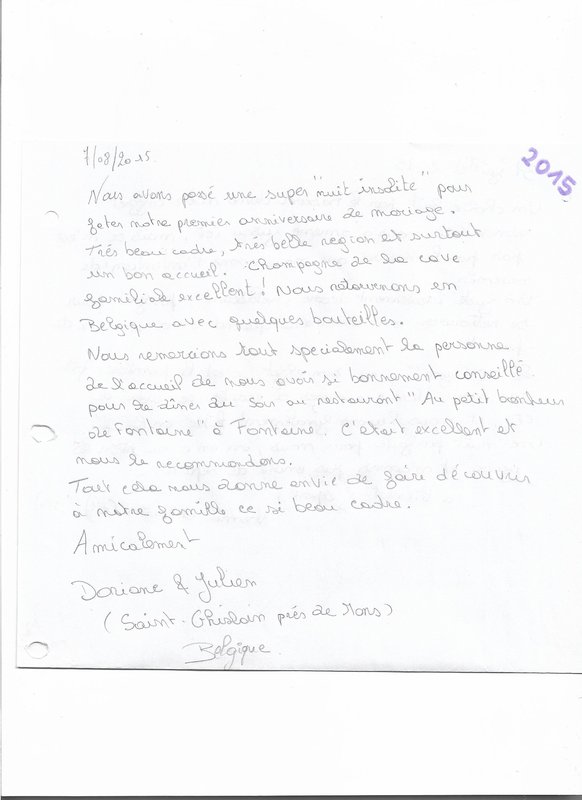 7/08/2015
2015
Nous avons passé une super "nuit insolite" pour
feter notre premier anniversaire de mariage.
Très beau cadre, très belle region et surtout
un bon accueil. Champagne de la cave
familiale excellent! Nous retournons en
Belgique avec quelques bouteilles.
Nous remercions tout specialement la personne
de l'accueil de nous avoir si bonnement conseillé
pour le dîner du soir au restaurant "Au petit bonheur
de Fontaine" à Fontaine. C'etait excellent et
nous le recommandons.
Tout cela nous donne envie de faire découvrir
à notre famille ce si beau cadre.
Amicalement
Doriane & Julien
(Saint-Ghislain près de Mons)
Belgique.